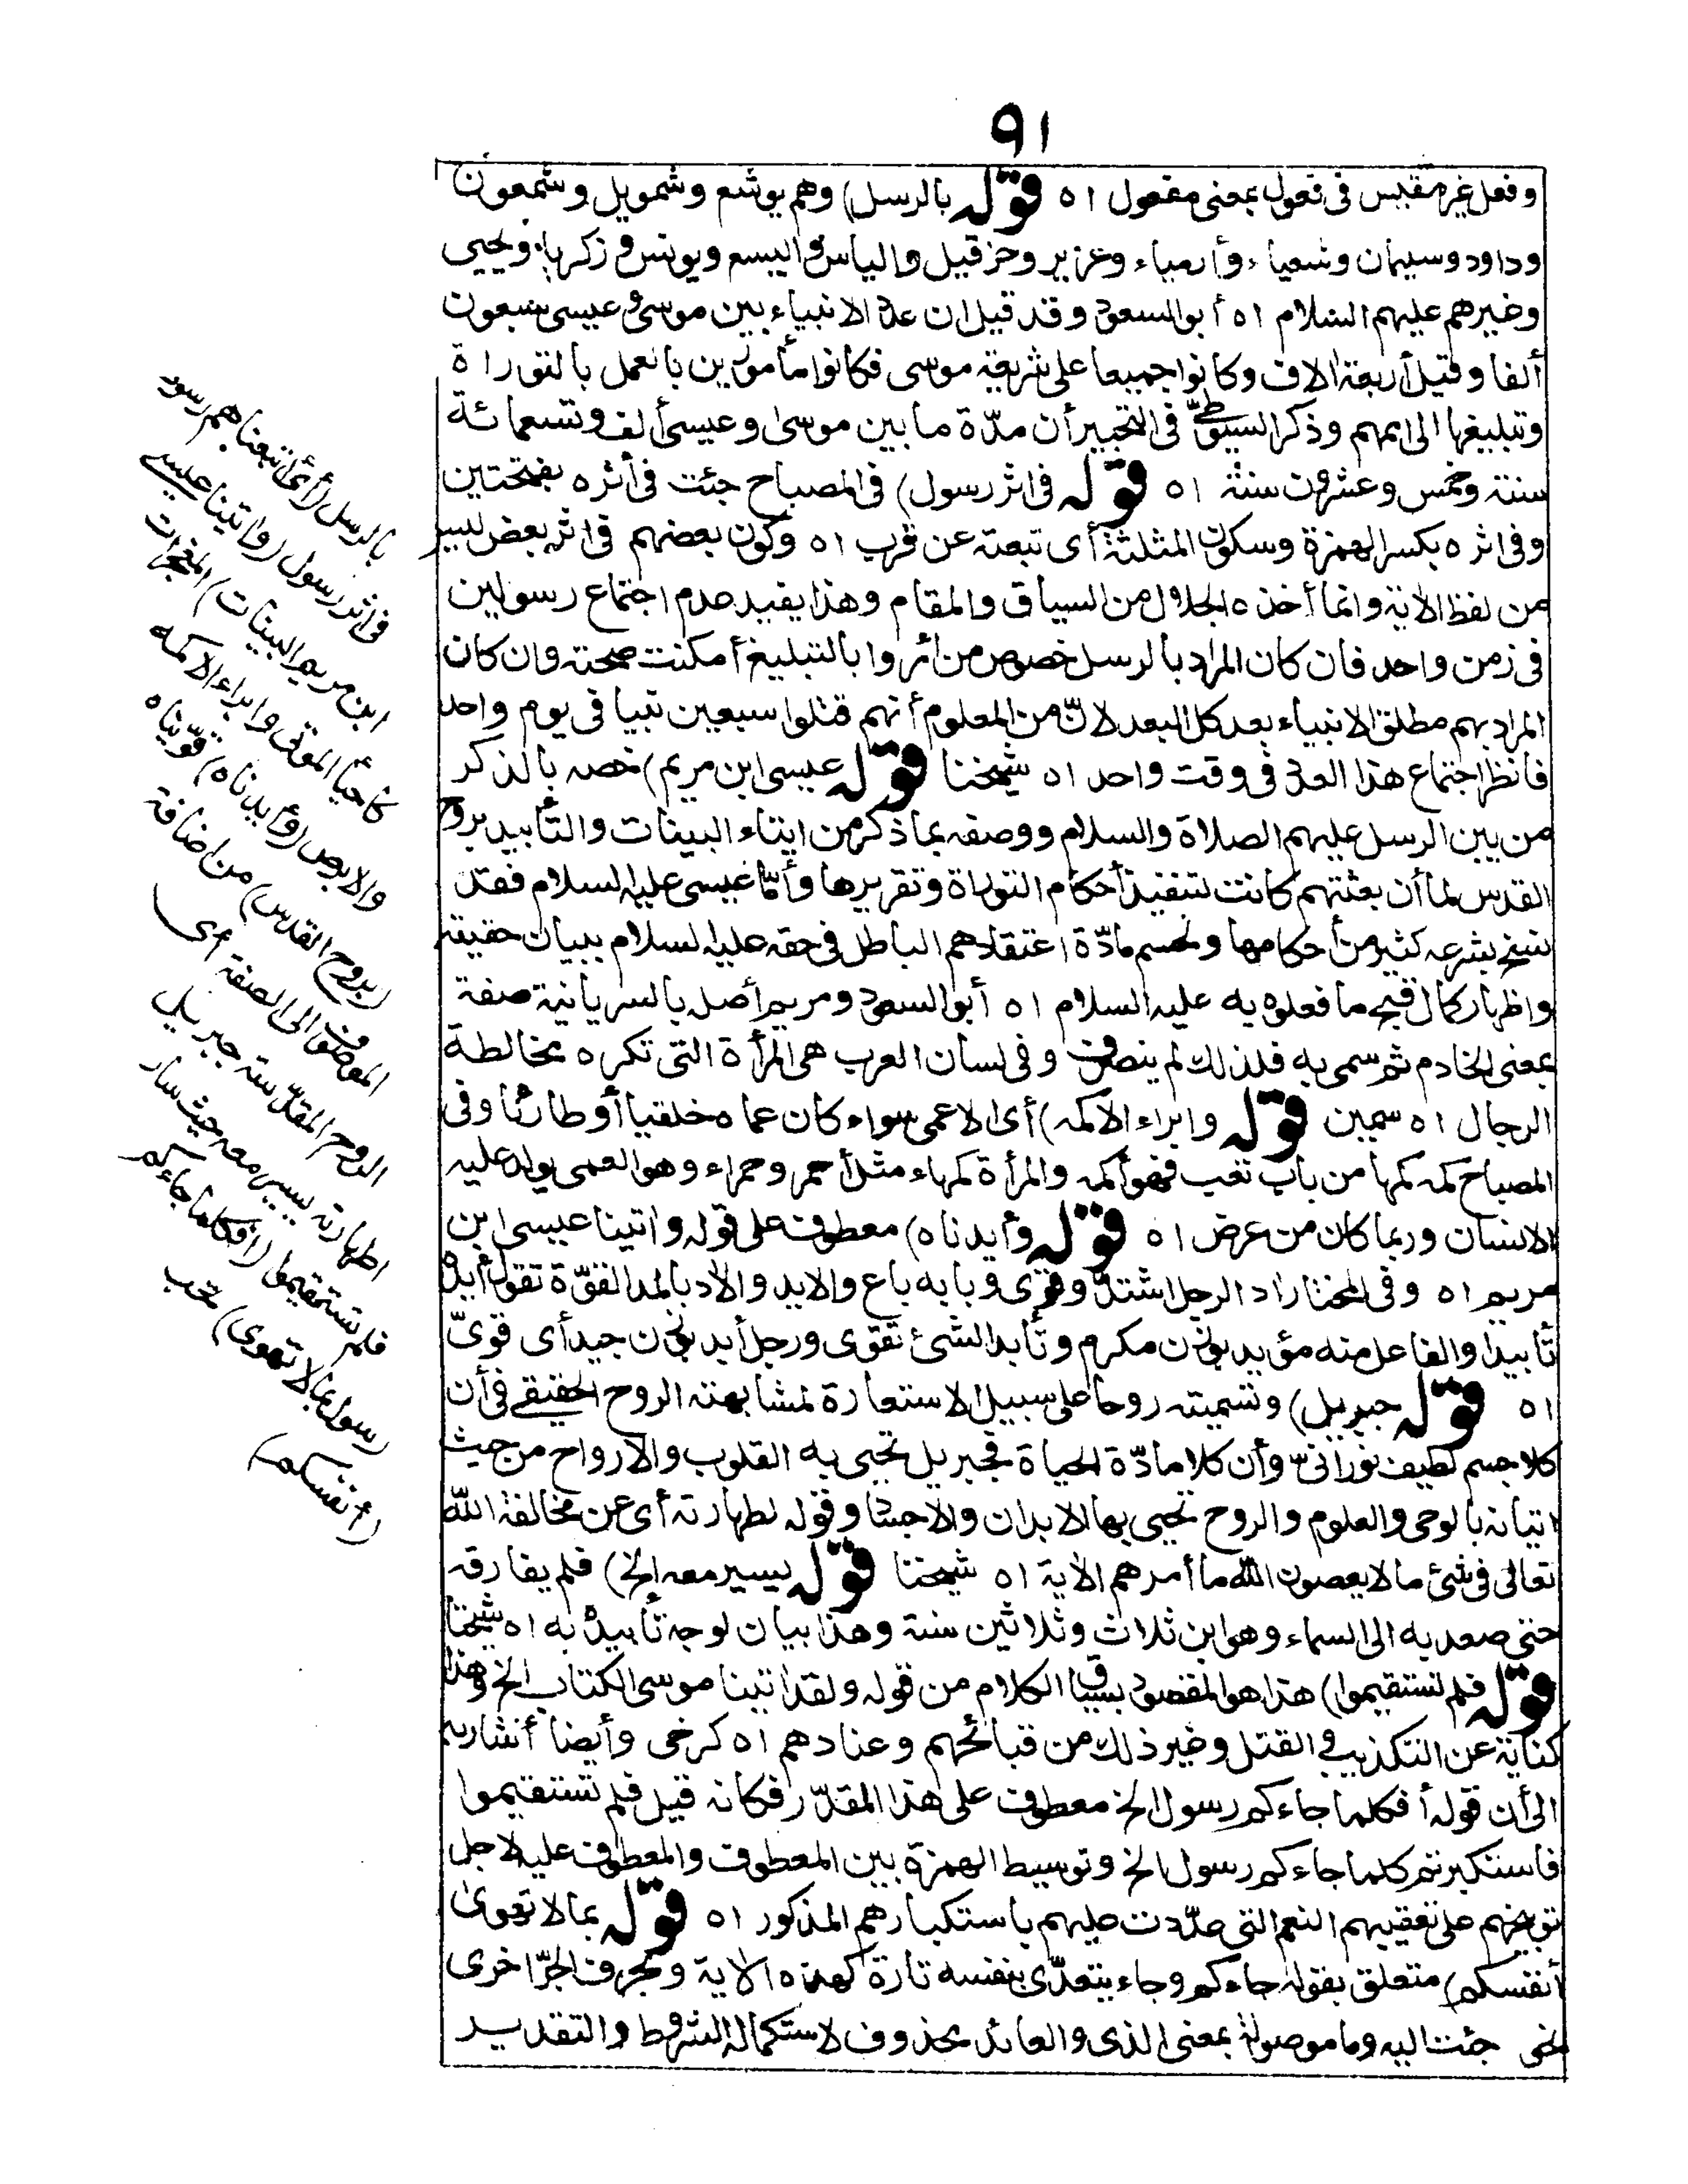 ٩١
وفعل غير مقيس فى فعول بمعنى مفعول اه قوله بالرسل) وهم يوشع وشمويل وشمعون
وداود وسيمان وشعياء وأرمياء وعزير وحزقيل والياس واليسع ويونس وزكريا ويحيى
وغيرهم عليهم السلام اه أبو السعود وقد قيل ان عدة الانبياء بين موسى وعيسى سبعون
ألفا وقيل أربعة الاف وكانوا جميعا على شريعة موسى فكانوا مأمورين بالعمل بالتوراة
وتبليغها الى اممهم وذكر السيوطىّ فى التحبير أن مدّة ما بين موسى وعيسى ألف وتسعمائة
سنة وخمس وعشرون سنة اه قوله فى اثر رسول) فى المصباح جئت فى أثره بفتحتين
وفى اثره بكسر الهمزة وسكون المثلثة أى تبعته عن قرب اه وكون بعضهم فى اثر بعض ليس
من لفظ الاية وانما أخذه الجلال من السياق والمقام وهذا يفيد عدم اجتماع رسولين
فى زمن واحد فان كان المراد بالرسل خصوص من أمروا بالتبليغ أمكنت صحته وان كان
المراد بهم مطلق الانبياء بعد كل البعد لانّ من المعلوم أنهم قتلوا سبعين نبيا فى يوم واحد
فانظر اجتماع هذا العدد فى وقت واحد اه شيخنا قوله عيسى ابن مريم) خصه بالذكر
من بين الرسل عليهم الصلاة والسلام ووصفه بما ذكر من ايتاء البينات والتأييد بروح
القدس لما أن بعثتهم كانت لتنفيذ أحكام التوراة وتقريرها وأمّا عيسى عليه السلام فقد
نسخ بشرعه كثير من أحكامها ولحسم مادّة اعتقادهم الباطل فى حقه عليه السلام ببيان حقيقته
واظهار كمال قبح ما فعلوه به عليه السلام اه أبو السعود ومريم أصله بالسريانية صفة
بمعنى الخادم ثم سمى به فلذلك لم ينصرف وفى لسان العرب هى المرأة التى تكره مخالطة
الرجال اه سمين قوله وابراء الاكمه) أى الاعمى سواء كان عماه خلقيا أو طارئا وفى
المصباح كمه كمها من باب تعب فهو أكمه والمرأة كمهاء مثل أحمر وحمراء وهو العمى يولد عليه
الانسان وربما كان من عرض اه قوله وأيدناه) معطوف على قوله واتينا عيسى ابن
مريم اه وفى المختار اد الرجل اشتدّ وقوى وبابه باع والايد والاد بالمد القوّة تقول أيده
تأييدا والفاعل منه مؤيد بوزن مكرم وتأيد الشئ تقوى ورجل أيد بوزن جيد أى قوىّ
اه قوله جبريل) وتسميته روحا على سبيل الاستعارة لمشابهته الروح الحقيقى فى أن
كلا جسم لطيف نورانىّ وأن كلا مادّة الحياة فجبريل تحيى به القلوب والارواح من حيث
اتيانه بالوحى والعلوم والروح تحيى بها الابدان والاجساد وقوله لطهارته أى عن مخالفة الله
تعالى فى شئ ما لا يعصون الله ما أمرهم الاية اه شيخنا قوله يسير معه الخ) فلم يفارقه
حتى صعد به الى السماء وهو ابن ثلاث وثلاثين سنة وهذا بيان لوجه تأييده به اه شيخنا
قوله فلم تستقيموا) هذا هو المقصود بسياق الكلام من قوله ولقد اتينا موسى الكتاب الخ وهذا
كناية عن التكذيب والقتل وغير ذلك من قبائحهم وعنادهم اه كرخى وأيضا أشار به
الى أن قوله أفكلما جاءكم رسول الخ معطوف على هذا المقدّر فكانه قيل فلم تستقيموا
فاستكبرتم كلما جاءكم رسول الخ وتوسيط الهمزة بين المعطوف والمعطوف عليه لاجل
توبيخهم على تعقيبهم النعم التى عدّدت عليهم باستكبارهم المذكور اه قوله بما لا تهوى
أنفسكم) متعلق بقوله جاءكم وجاء يتعدّى بنفسه تارة كهذه الاية وبحرف الجرّ اخرى
نحو جئت اليه وما موصولة بمعنى الذى والعائد محذوف لاستكماله الشروط والتقدير
بالرسل) أى أتبعناهم رسولا
فى اثر رسول (واتينا عيسى
ابن مريم البينات) المعجزات
كاحياء الموتى وابراء الاكمه
والابرص (وأيدناه) قوّيناه
(بروح القدس) من اضافة
الموصوف الى الصفة أى
الروح المقدّسة جبريل
لطهارته يسير معه حيث سار
فلم تستقيموا (أفكلما جاءكم
رسول بما لا تهوى) تحب
(أنفسكم)